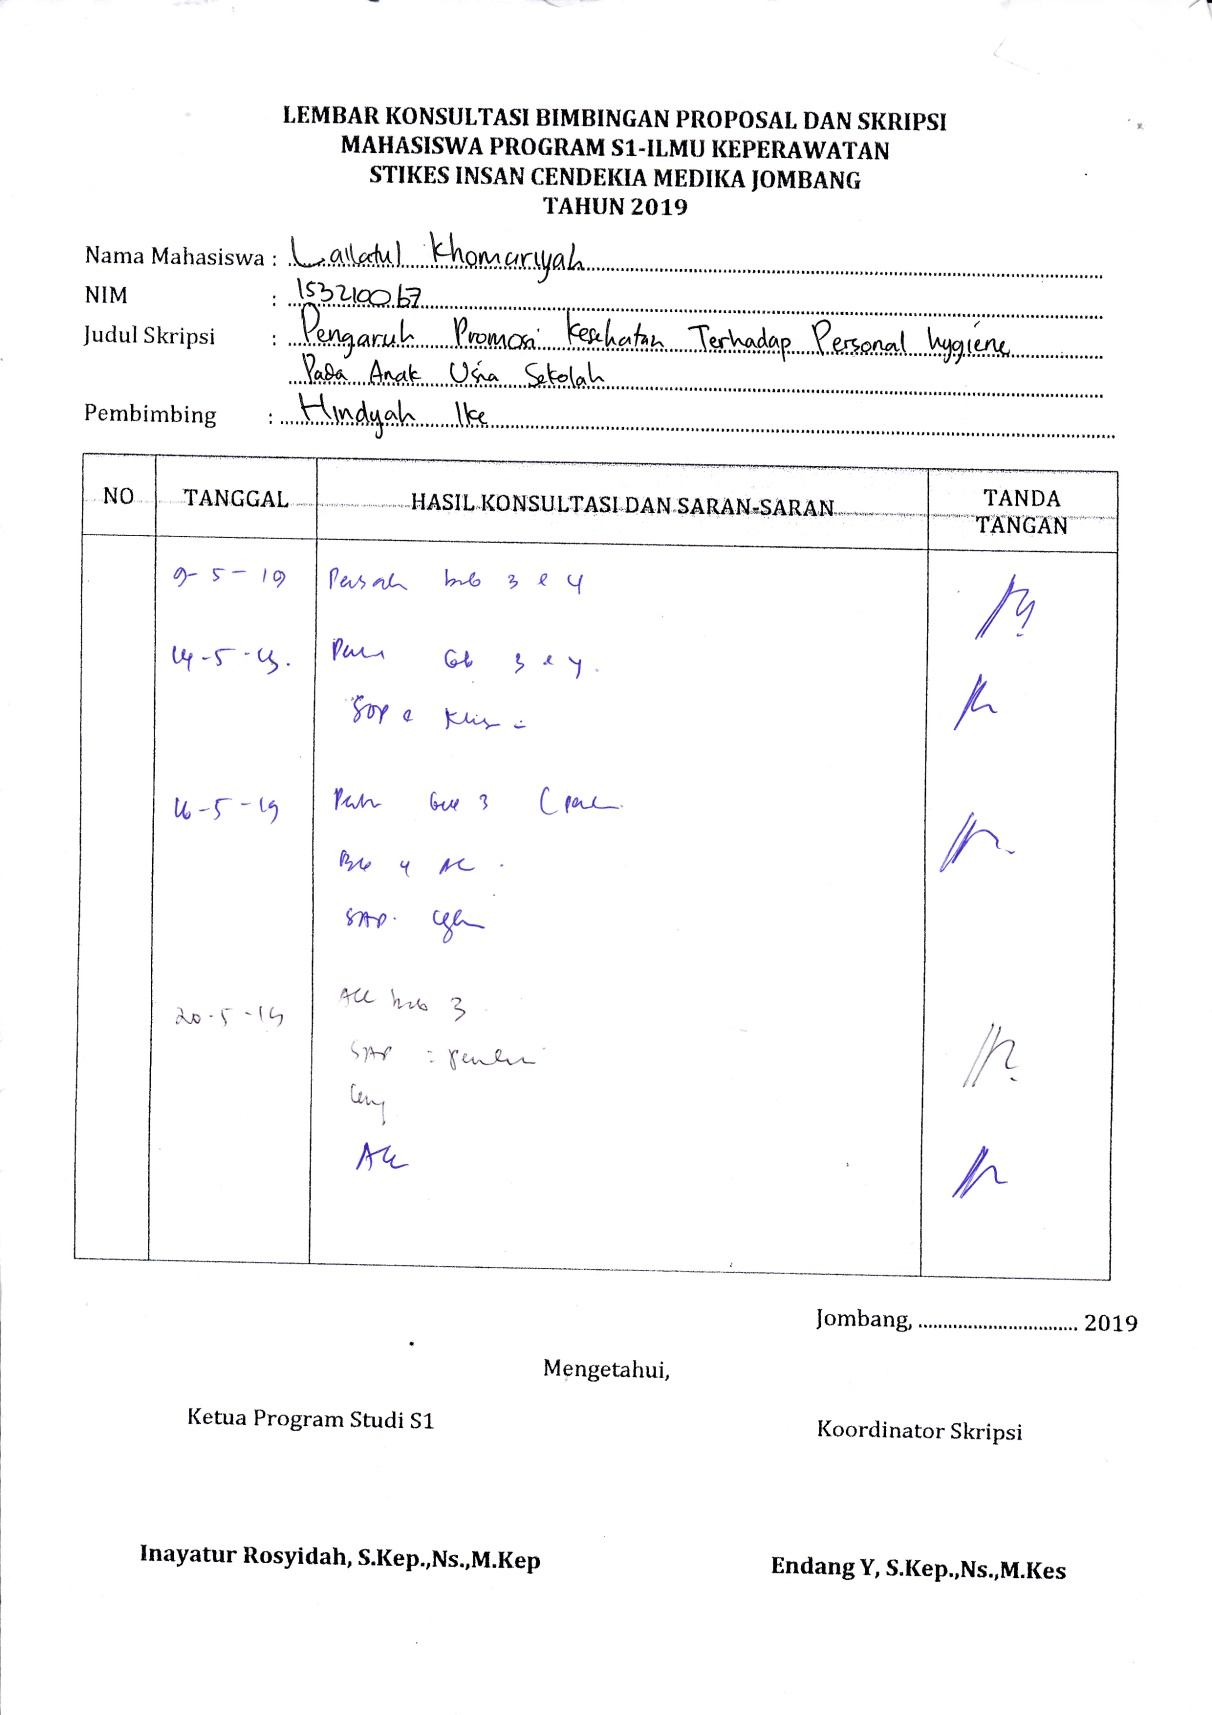 LEMBAR KONSULTASI BIMBINGAN PROPOSAL DAN SKRIPSI
MAHASISWA PROGRAM S1-ILMU KEPERAWATAN
STIKES INSAN CENDEKIA MEDIKA JOMBANG
TAHUN 2019
Nama Mahasiswa : Lailatul Khomariyah
NIM : 153210067
Judul Skripsi : Pengaruh Promosi Kesehatan Terhadap Personal hygiene
Pada Anak Usia Sekolah
Pembimbing : Hindyah Ike
NO TANGGAL HASIL KONSULTASI DAN SARAN-SARAN TANDA TANGAN
9-5-19 bab 3 & 4
14-5-19. 3 & 4.
SOP &
16-5-19 3
Bab 4 Acc.
SAP.
20-5-19 Acc bab 3
SAP :
Acc
Jombang, ................................ 2019
Mengetahui,
Ketua Program Studi S1 Koordinator Skripsi
Inayatur Rosyidah, S.Kep.,Ns.,M.Kep Endang Y, S.Kep.,Ns.,M.Kes